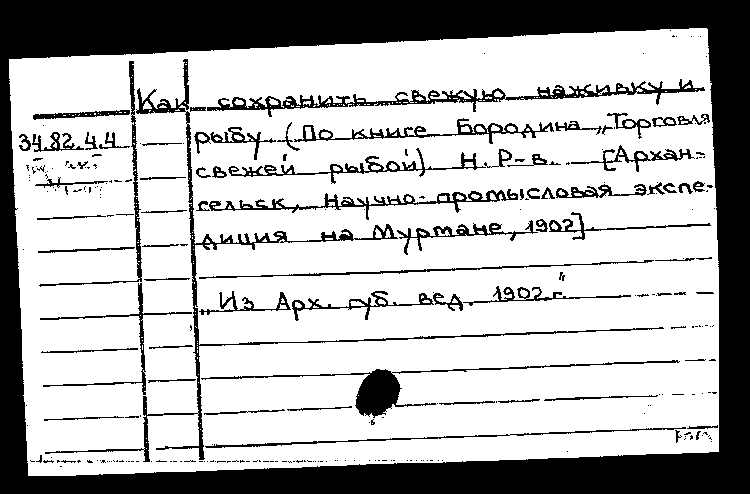 Как сохранить свежую наживку и
34.82.4.4
рыбу (По книге Бородина „Торговля
свежей рыбой). Н. Р-в. [Архан-
гельск, Научно-промысловая экспе-
диция на Мурмане, 1902].
„Из Арх. губ. вед. 1902 г.“